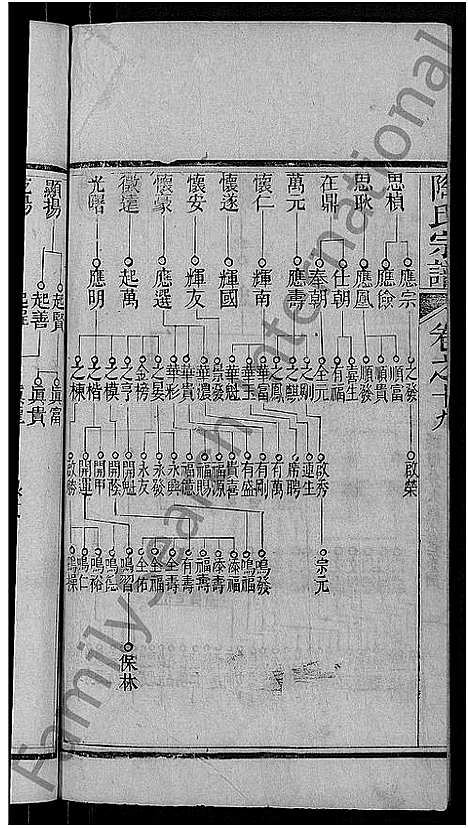 陳氏宗譜
卷之十九
思楨 思耿 在鼎 萬元 懷仁 懷遂 懷安 懷豪 徵達 光曙
應宗 應儉 應鳳 仕朝 奉朝 應壽 輝南 輝國 輝友 應選 起萬 應明
之發 順富 順貴 順發 喜生 有福 全元 之剛 之麒 之鳳 華富 華玉 華魁 崇發 華濃 華貴 華彩 之晏 金榜 之亨 之模 之楷 之棟
啟榮 啟秀 連生 席聘 有萬 有剛 有盛 貴喜 福源 福賜 福德 永興 永發 永友 開魁 開發 開甲 開運 啟勝
宗元 鳴發 鳴福 添福 添壽 福壽 有壽 全壽 全福 全佑 鳴習 鳴岐 鳴裕 鳴仁 鳴操
保林
顯揚
起賢 起善
眞富 眞貴
Family Search International